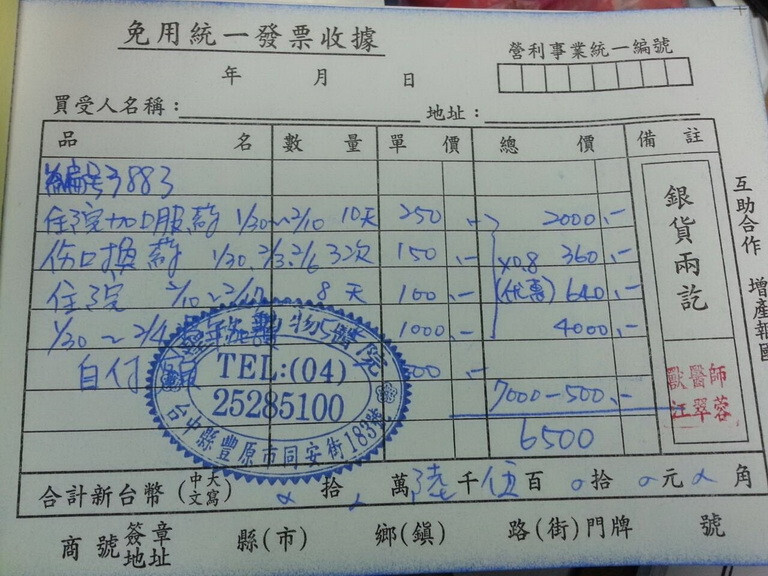 免用統一發票收據
營利事業統一編號
年 月 日
買受人名稱: 地址:
品名 數量 單價 總價 備註
編号3883
住院加口服葯 1/30~2/10 10天 250.- 2000.-
伤口換葯 1/30.2/3.2/6 3次 150.- x0.8 360.-
住院 8天 100.- (优惠) 640.-
1/30~2/4 1000.- 4000.-
自付 500.-
7000-500.-
6500
銀貨兩訖
獸醫師
江翠蓉
TEL:(04)
25285100
台中縣豐原市同安街183號
互助合作 增產報國
合計新台幣(中文大寫) 拾 萬陸千伍百 拾 元 角
商號簽章地址 縣(市) 鄉(鎮) 路(街)門牌 號